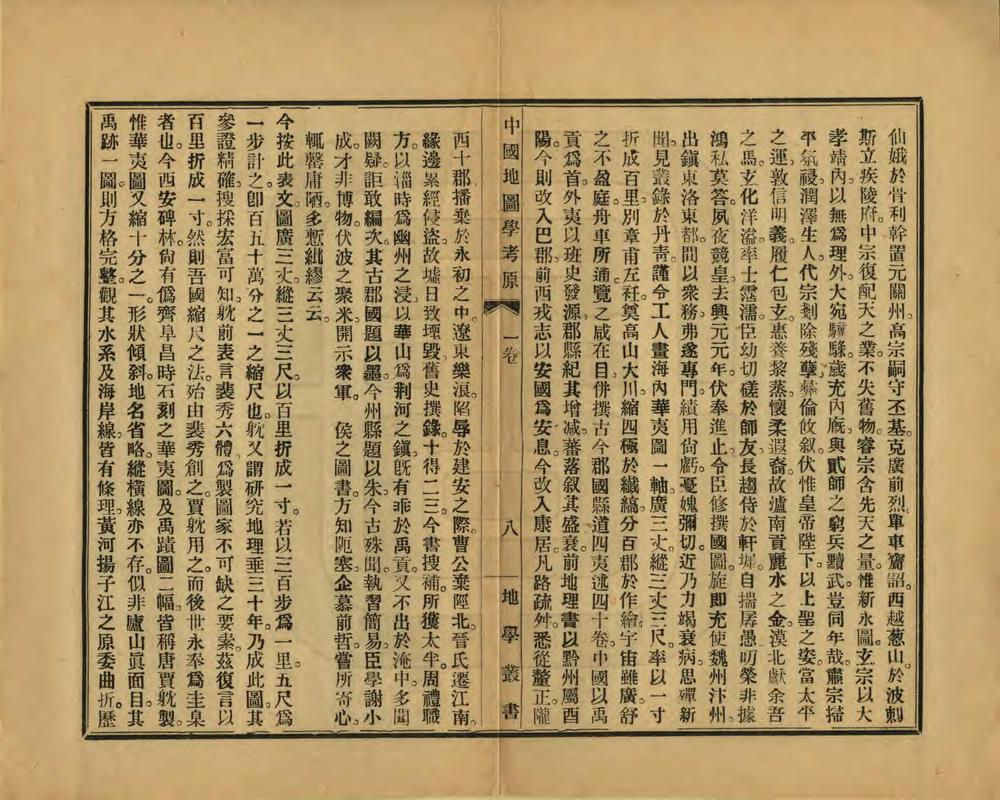 仙娥於骨利幹置元闕州。高宗嗣守丕基。克廣前烈。單車齎詔。西越葱山。於波剌
斯立疾陵府。中宗復配天之業。不失舊物。睿宗含先天之量。惟新永圖。玄宗以大
孝靖內。以無爲理外。大宛驥騄。歲充內廐。與貳師之窮兵黷武。豈同年哉。肅宗掃
平氛祲。潤澤生人。代宗剗除殘孽。彝倫攸叙。伏惟皇帝陛下。以上聖之姿。當太平
之運。敦信明義。履仁包玄。惠養黎蒸。懷柔遐裔。故瀘南貢麗水之金。漠北獻余吾
之馬。玄化洋溢。率士霑濡。臣幼切磋於師友。長趨侍於軒墀。自揣孱愚。叨榮非據。
鴻私莫答。夙夜兢皇。去興元元年。伏奉進止。令臣修撰國圖。旋即充使魏州汴州。
出鎭東洛東都。間以衆務。弗遂專門。績用尙虧。憂媿彌切。近乃力竭衰病。思殫新
聞見。叢錄於丹靑。謹令工人畫海內華夷圖一軸。廣三丈。縱三丈三尺。率以一寸
折成百里。別章甫左衽。奠高山大川。縮四極於纖縞。分百郡於作繪。宇宙雖廣。舒
之不盈庭。舟車所通。覽之咸在目。併撰古今郡國縣道四夷述四十卷。中國以禹
貢爲首。外夷以班史發源。郡縣紀其增減。蕃落叙其盛衰。前地理書以黔州屬酉
陽。今則改入巴郡。前西戎志以安國爲安息。今改入康居。凡路疏舛。悉從釐正。隴
中國地圖學考原 一卷 八 地學叢書
西十郡播棄於永初之中。遼東樂浪。陷辱於建安之際。曹公棄陘北。晉氏遷江南。
緣邊累經侵盜。故墟日致堙毀。舊史撰錄。十得二三。今書搜補。所獲太半。周禮職
方。以淄時爲幽州之浸。以華山爲荆河之鎭。旣有乖於禹貢。又不出於淹中。多聞
闕疑。詎敢編次。其古郡國題以墨。今州縣題以朱。今古殊聞。執習簡易。臣學謝小
成。才非博物。伏波之聚米。開示衆軍。 侯之圖書。方知阨塞。企慕前哲。嘗所寄心。
輒罄庸陋。多慙紕繆云云。
今按此表文。圖廣三丈。縱三丈三尺。以百里折成一寸。若以三百步爲一里。五尺爲
一步計之。卽百五十萬分之一之縮尺也。躭又謂研究地理垂三十年。乃成此圖。其
參證精確。搜採宏富可知。躭前表言裴秀六體。爲製圖家不可缺之要素。茲復言以
百里折成一寸。然則吾國縮尺之法。始由裴秀創之。賈躭用之。而後世永奉爲圭臬
者也。今西安碑林。尙有僞齊阜昌時石刻之華夷圖。及禹蹟圖二幅。皆稱唐賈躭製。
惟華夷圖又縮十分之一。形狀傾斜。地名省略。縱橫線亦不存。似非廬山眞面目。其
禹跡一圖。則方格完整。觀其水系及海岸線。皆有條理。黃河揚子江之原委曲折。歷